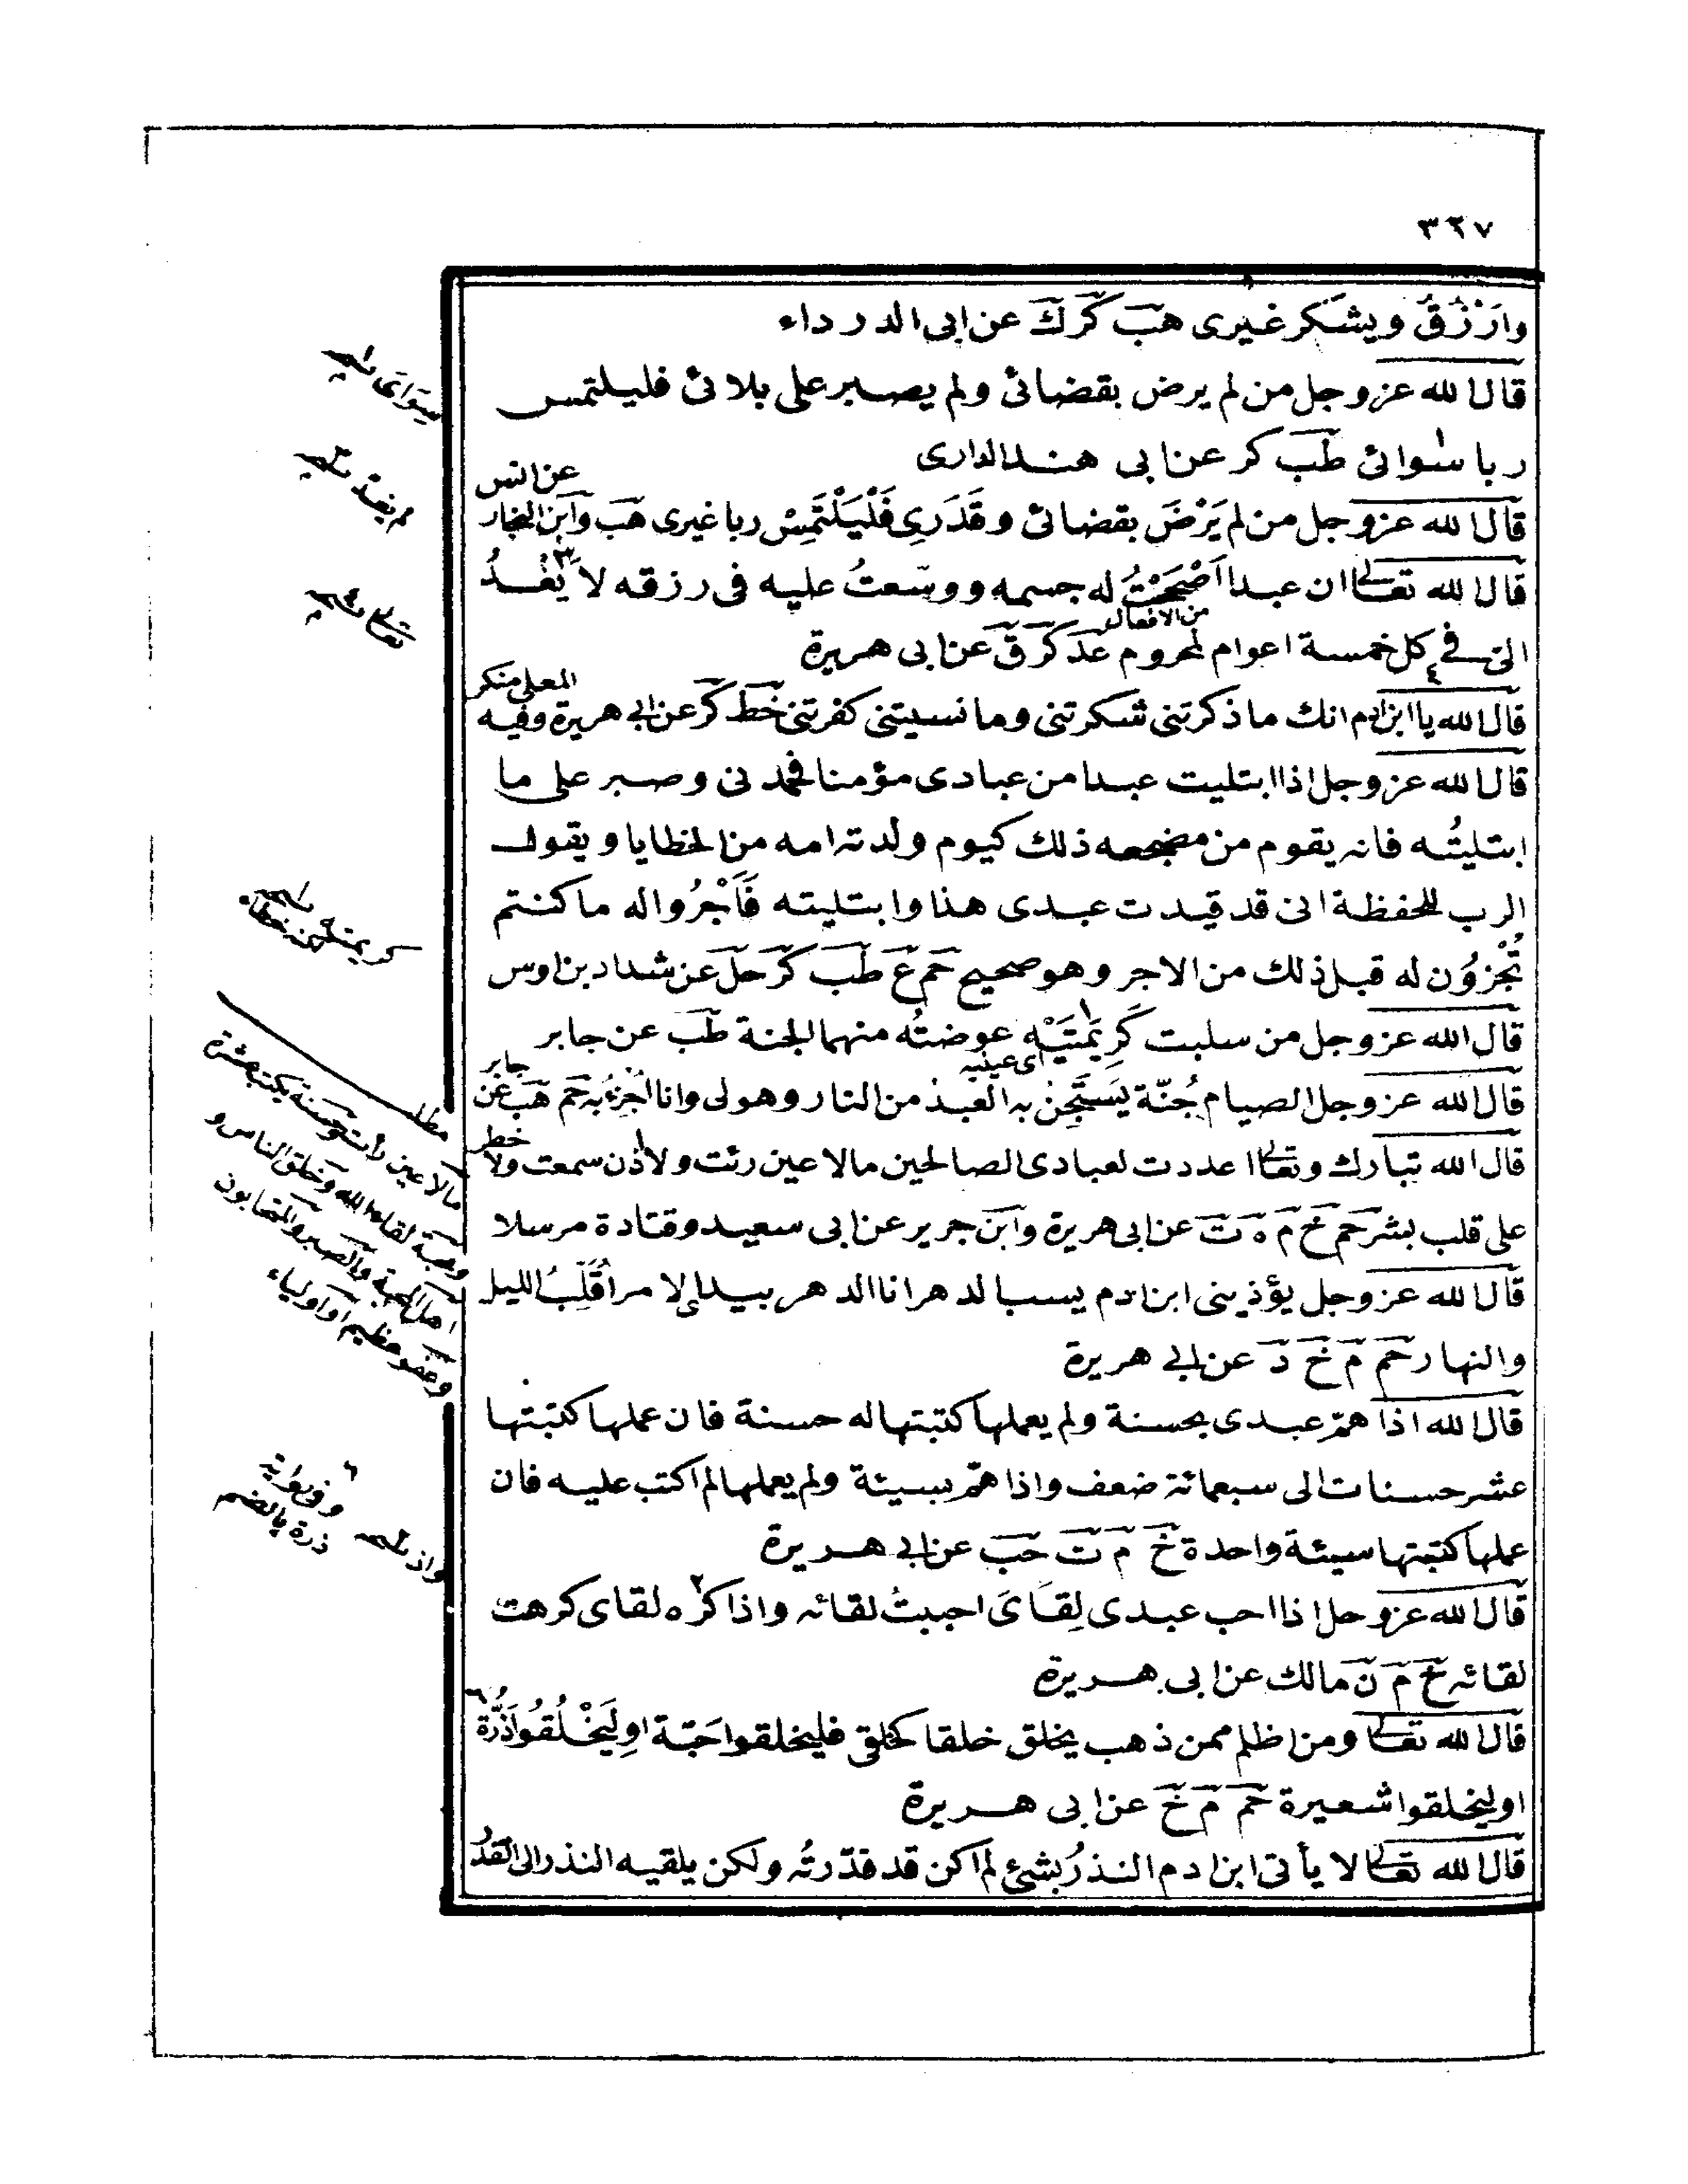 ٣٢٧
وارْزُقُ ويشكر غيرى هب كر ك عن ابى الدرداء
قال الله عز وجل من لم يرض بقضائى ولم يصبر على بلائى فليلتمس
ربا سوائى طب كر عن ابى هند الدارى
قال الله عز وجل من لم يَرْضَ بقضائى وقَدَرِى فَلْيَلْتَمِسْ ربا غيرى هب وابن النجار عن انس
قال الله تعالى ان عبدا اَصْحَحْتُ له جسمه ووسّعتُ عليه فى رزقه لا يَفْدُ
الىّ فى كل خمسة اعوام لمحروم عد كر ق عن ابى هريرة
من الافعال
قال الله يا ابن ادم انك ما ذكرتنى شكرتنى وما نسيتنى كفرتنى خط كر عن ابى هريرة وفيه المعلى منكر
قال الله عز وجل اذا ابتليت عبدا من عبادى مؤمنا فحمدنى وصبر على ما
ابتليتُه فانه يقوم من مضجعه ذلك كيوم ولدته امه من الخطايا ويقول
الرب للحفظة انى قد قيدت عبدى هذا وابتليته فَاَجْرُوا له ما كنتم
تُجْزوُن له قبل ذلك من الاجر وهو صحيح حم ع طب كر حل عن شداد بن اوس
قال الله عز وجل من سلبت كَرِيمَتَيْه عوضتُه منهما الجنة طب عن جابر
اى عينيه
قال الله عز وجل الصيام جُنّة يَسْتَجِنُ به العبدُ من النار وهو لى وانا اَجْزِئُ به حم هب عن جابر
قال الله تبارك وتعالى اعددت لعبادى الصالحين مالا عين رئت ولا اُذن سمعت ولا خطر
على قلب بشر حم خ م ه ت عن ابى هريرة وابن جرير عن ابى سعيد وقتادة مرسلا
قال الله عز وجل يؤذينى ابن ادم يسب الدهر انا الدهر بيدى الامر اُقَلِّبُ الليل
والنهار حم م خ د عن ابى هريرة
قال الله اذا همّ عبدى بحسنة ولم يعملها كتبتها له حسنة فان عملها كتبتها
عشر حسنات الى سبعمائة ضعف واذا همّ بسيئة ولم يعملها لم اكتب عليه فان
عملها كتبتها سيئة واحدة خ م ت حب عن ابى هريرة
قال الله عز وجل اذا احب عبدى لِقَاىَ احببتُ لقائه واذا كره لقاى كرهت
لقائه خ م ن مالك عن ابى هريرة
قال الله تعالى ومن اظلم ممن ذهب يخلق خلقا كخلقى فليخلقوا حَبّة اولِيَخْلُقُوا ذُرّة
اوليخلقوا شعيرة حم م خ عن ابى هريرة
قال الله تعالى لا يأتى ابن ادم النذرُ بشئ لم اكن قد قدّرتُه ولكن يلقيه النذر الى القدُ
سوَاىَ
تعالى
كريمته
مالا عين رأت وحسنة يكتب عشرة
ومحبة لقاء الله وخلق الناس و
اهل المحبة والصبر والمتحابون
واذ
ذرة بالضم